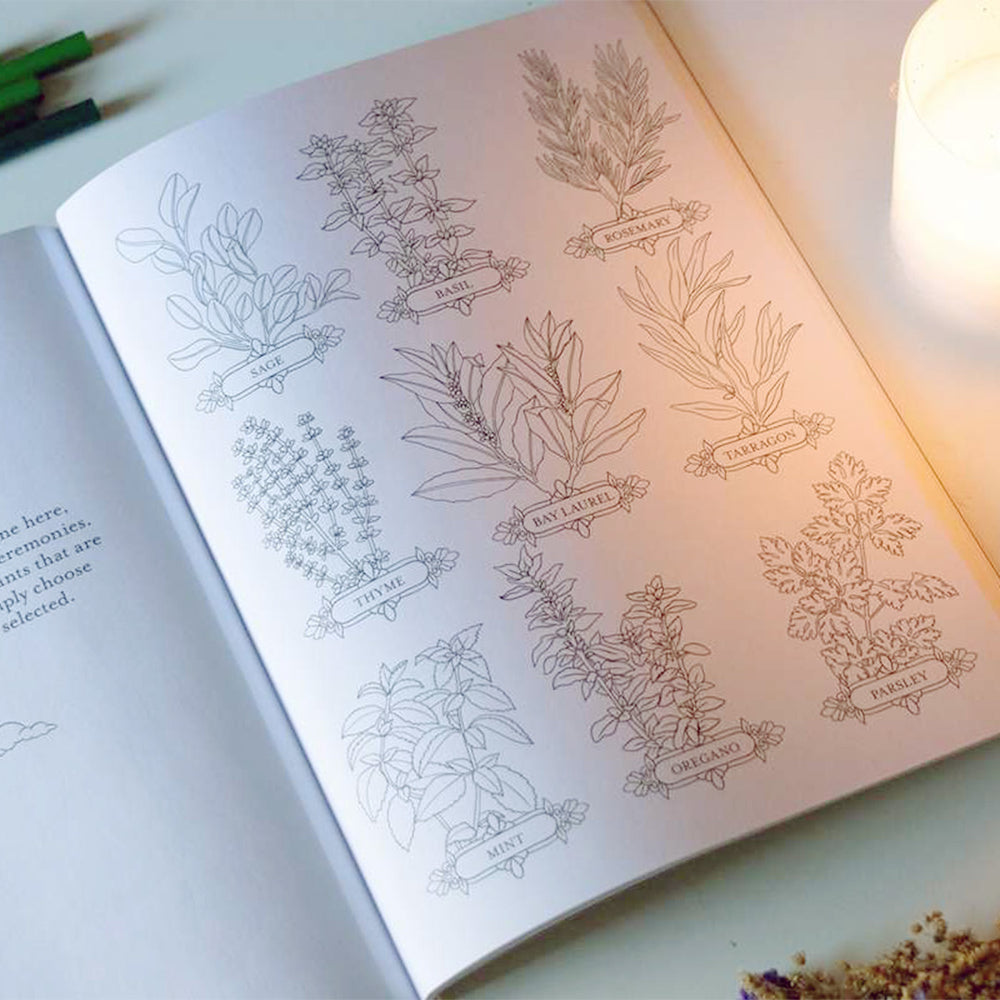 ne here,
eremonies.
nts that are
ply choose
selected.
SAGE
BASIL
ROSEMARY
THYME
BAY LAUREL
TARRAGON
MINT
OREGANO
PARSLEY